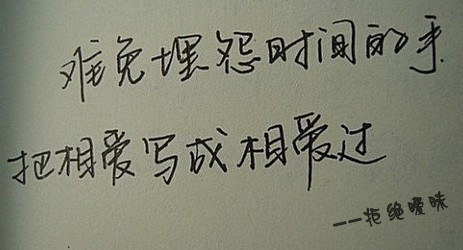 难免埋怨时间的手
把相爱写成相爱过
——拒绝暧昧